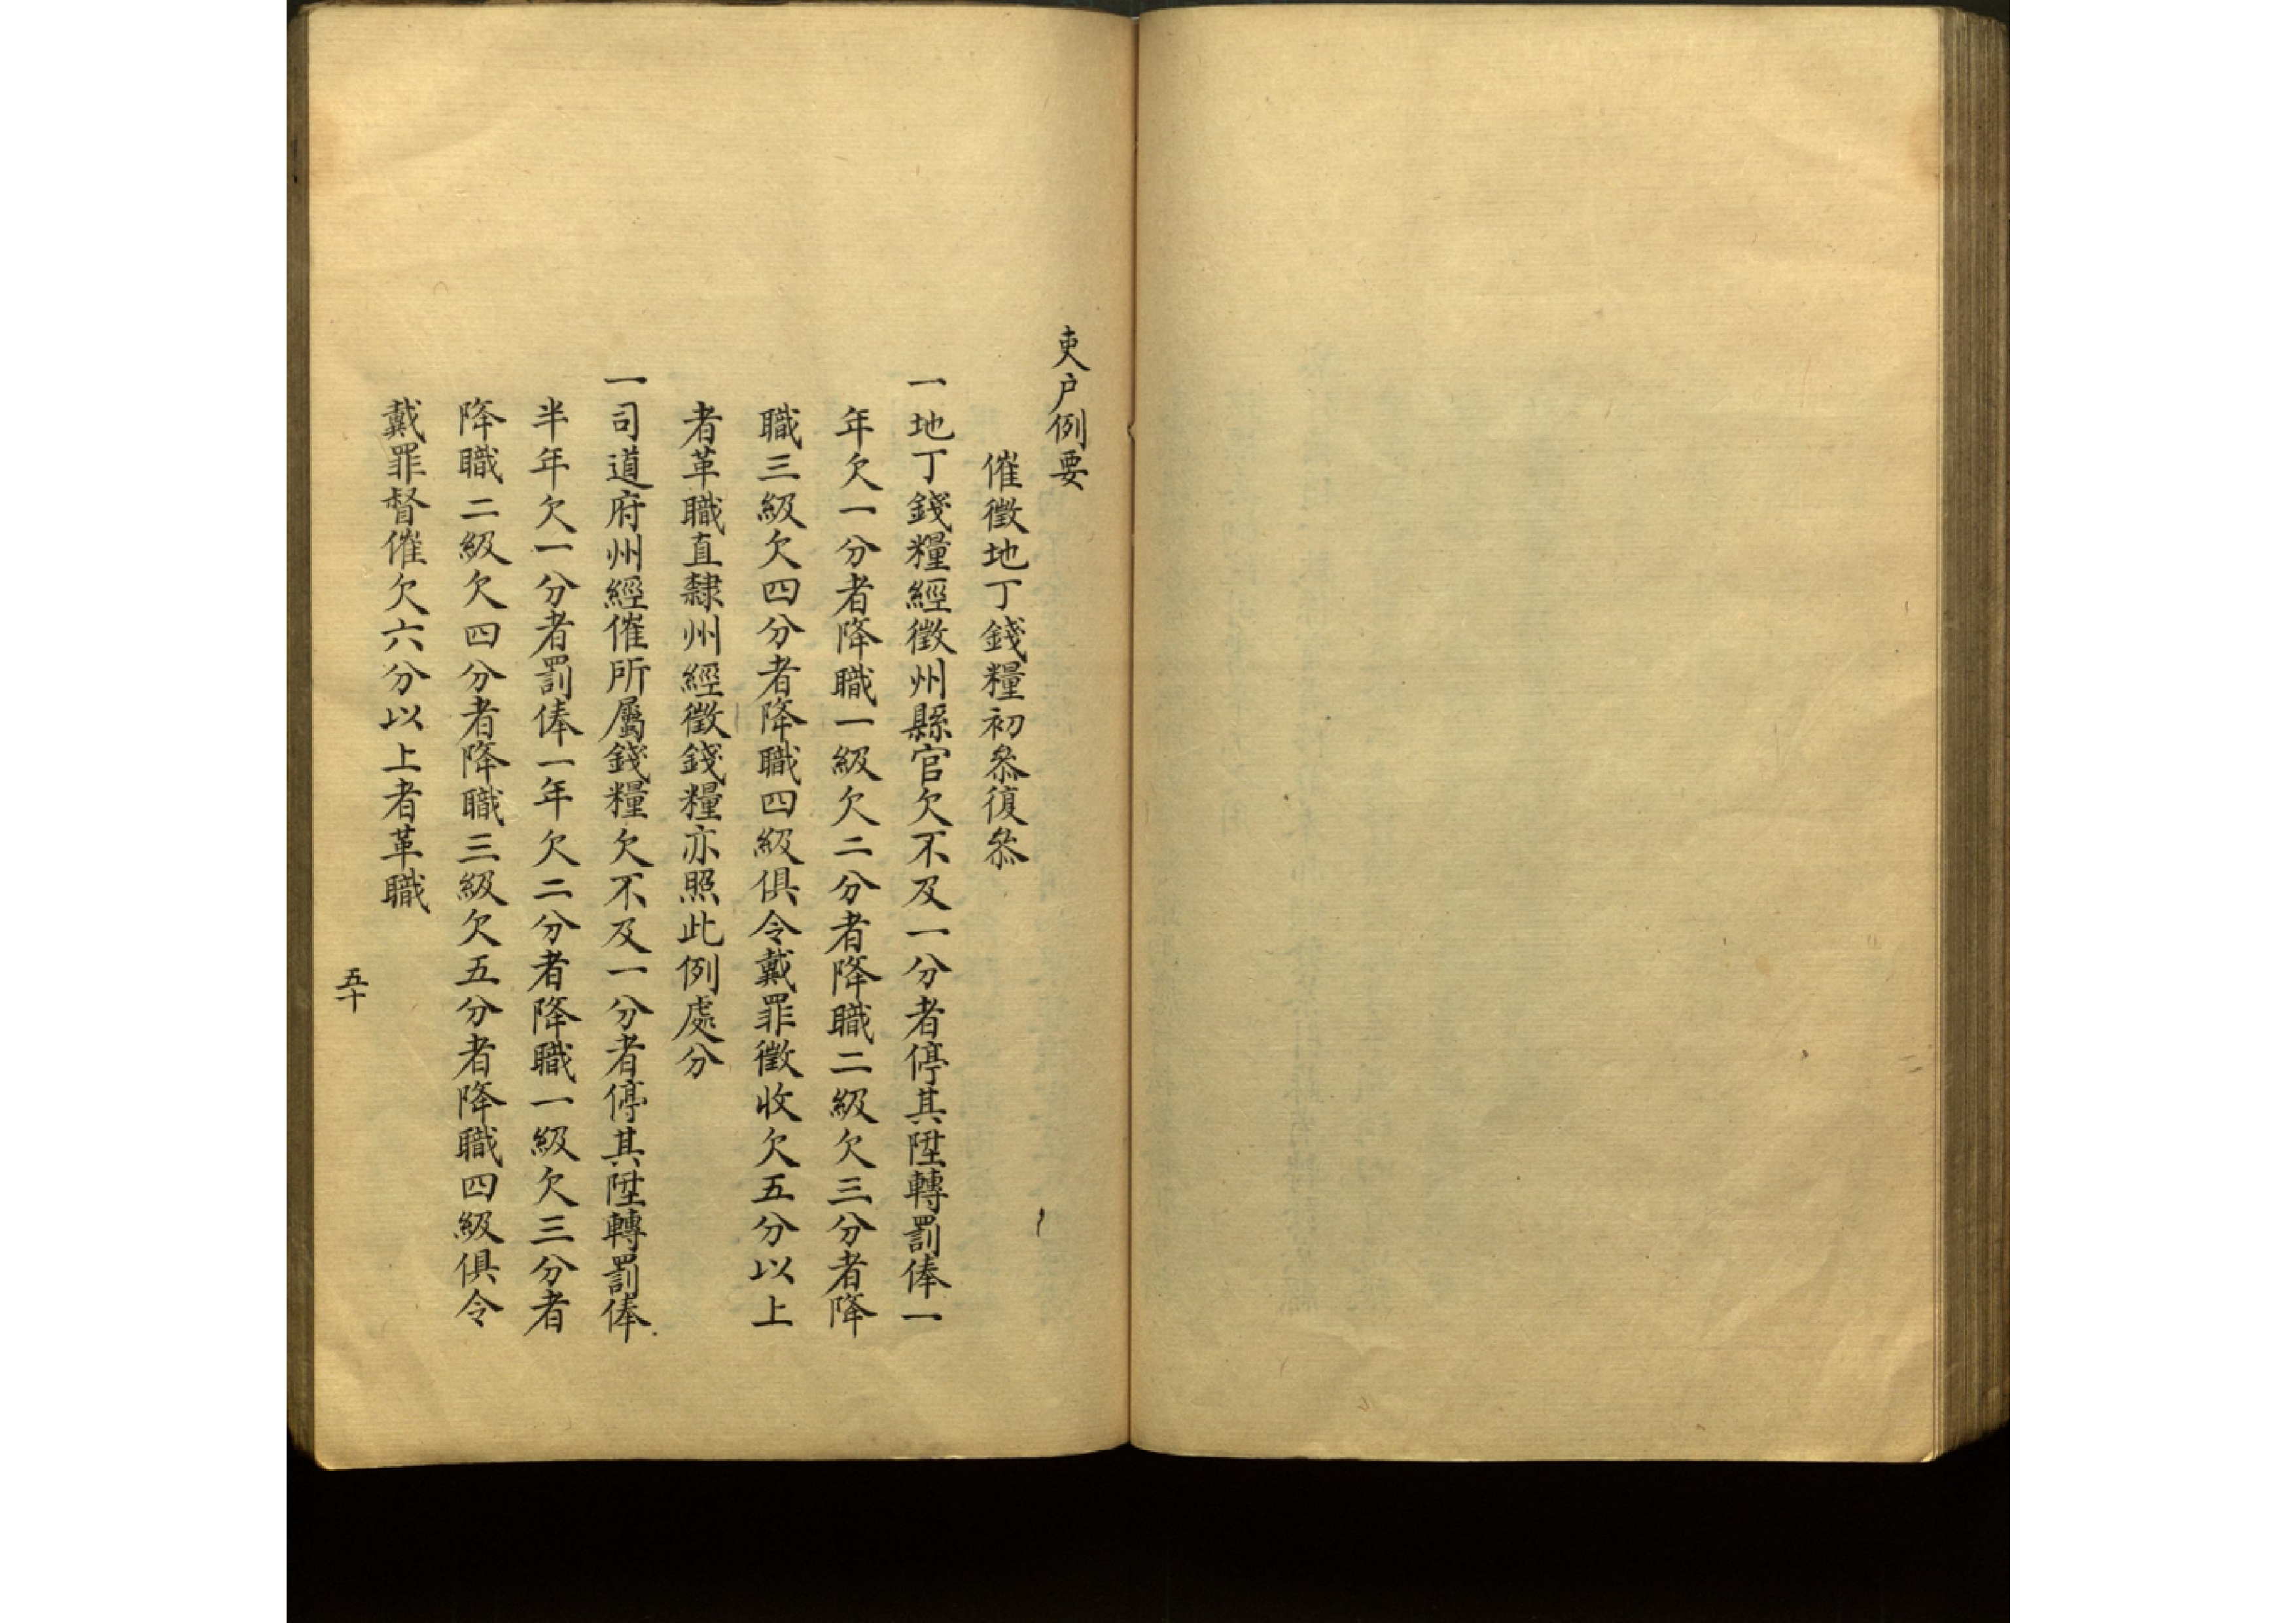 吏户例要
催徵地丁錢糧初叅復叅
一地丁錢糧經徵州縣官欠不及一分者停其陞轉罰俸一
年欠一分者降職一級欠二分者降職二級欠三分者降
職三級欠四分者降職四級俱令戴罪徵收欠五分以上
者革職直隸州經徵錢糧亦照此例處分
一司道府州經催所屬錢糧欠不及一分者停其陞轉罰俸
半年欠一分者罰俸一年欠二分者降職一級欠三分者
降職二級欠四分者降職三級欠五分者降職四級俱令
戴罪督催欠六分以上者革職
五十